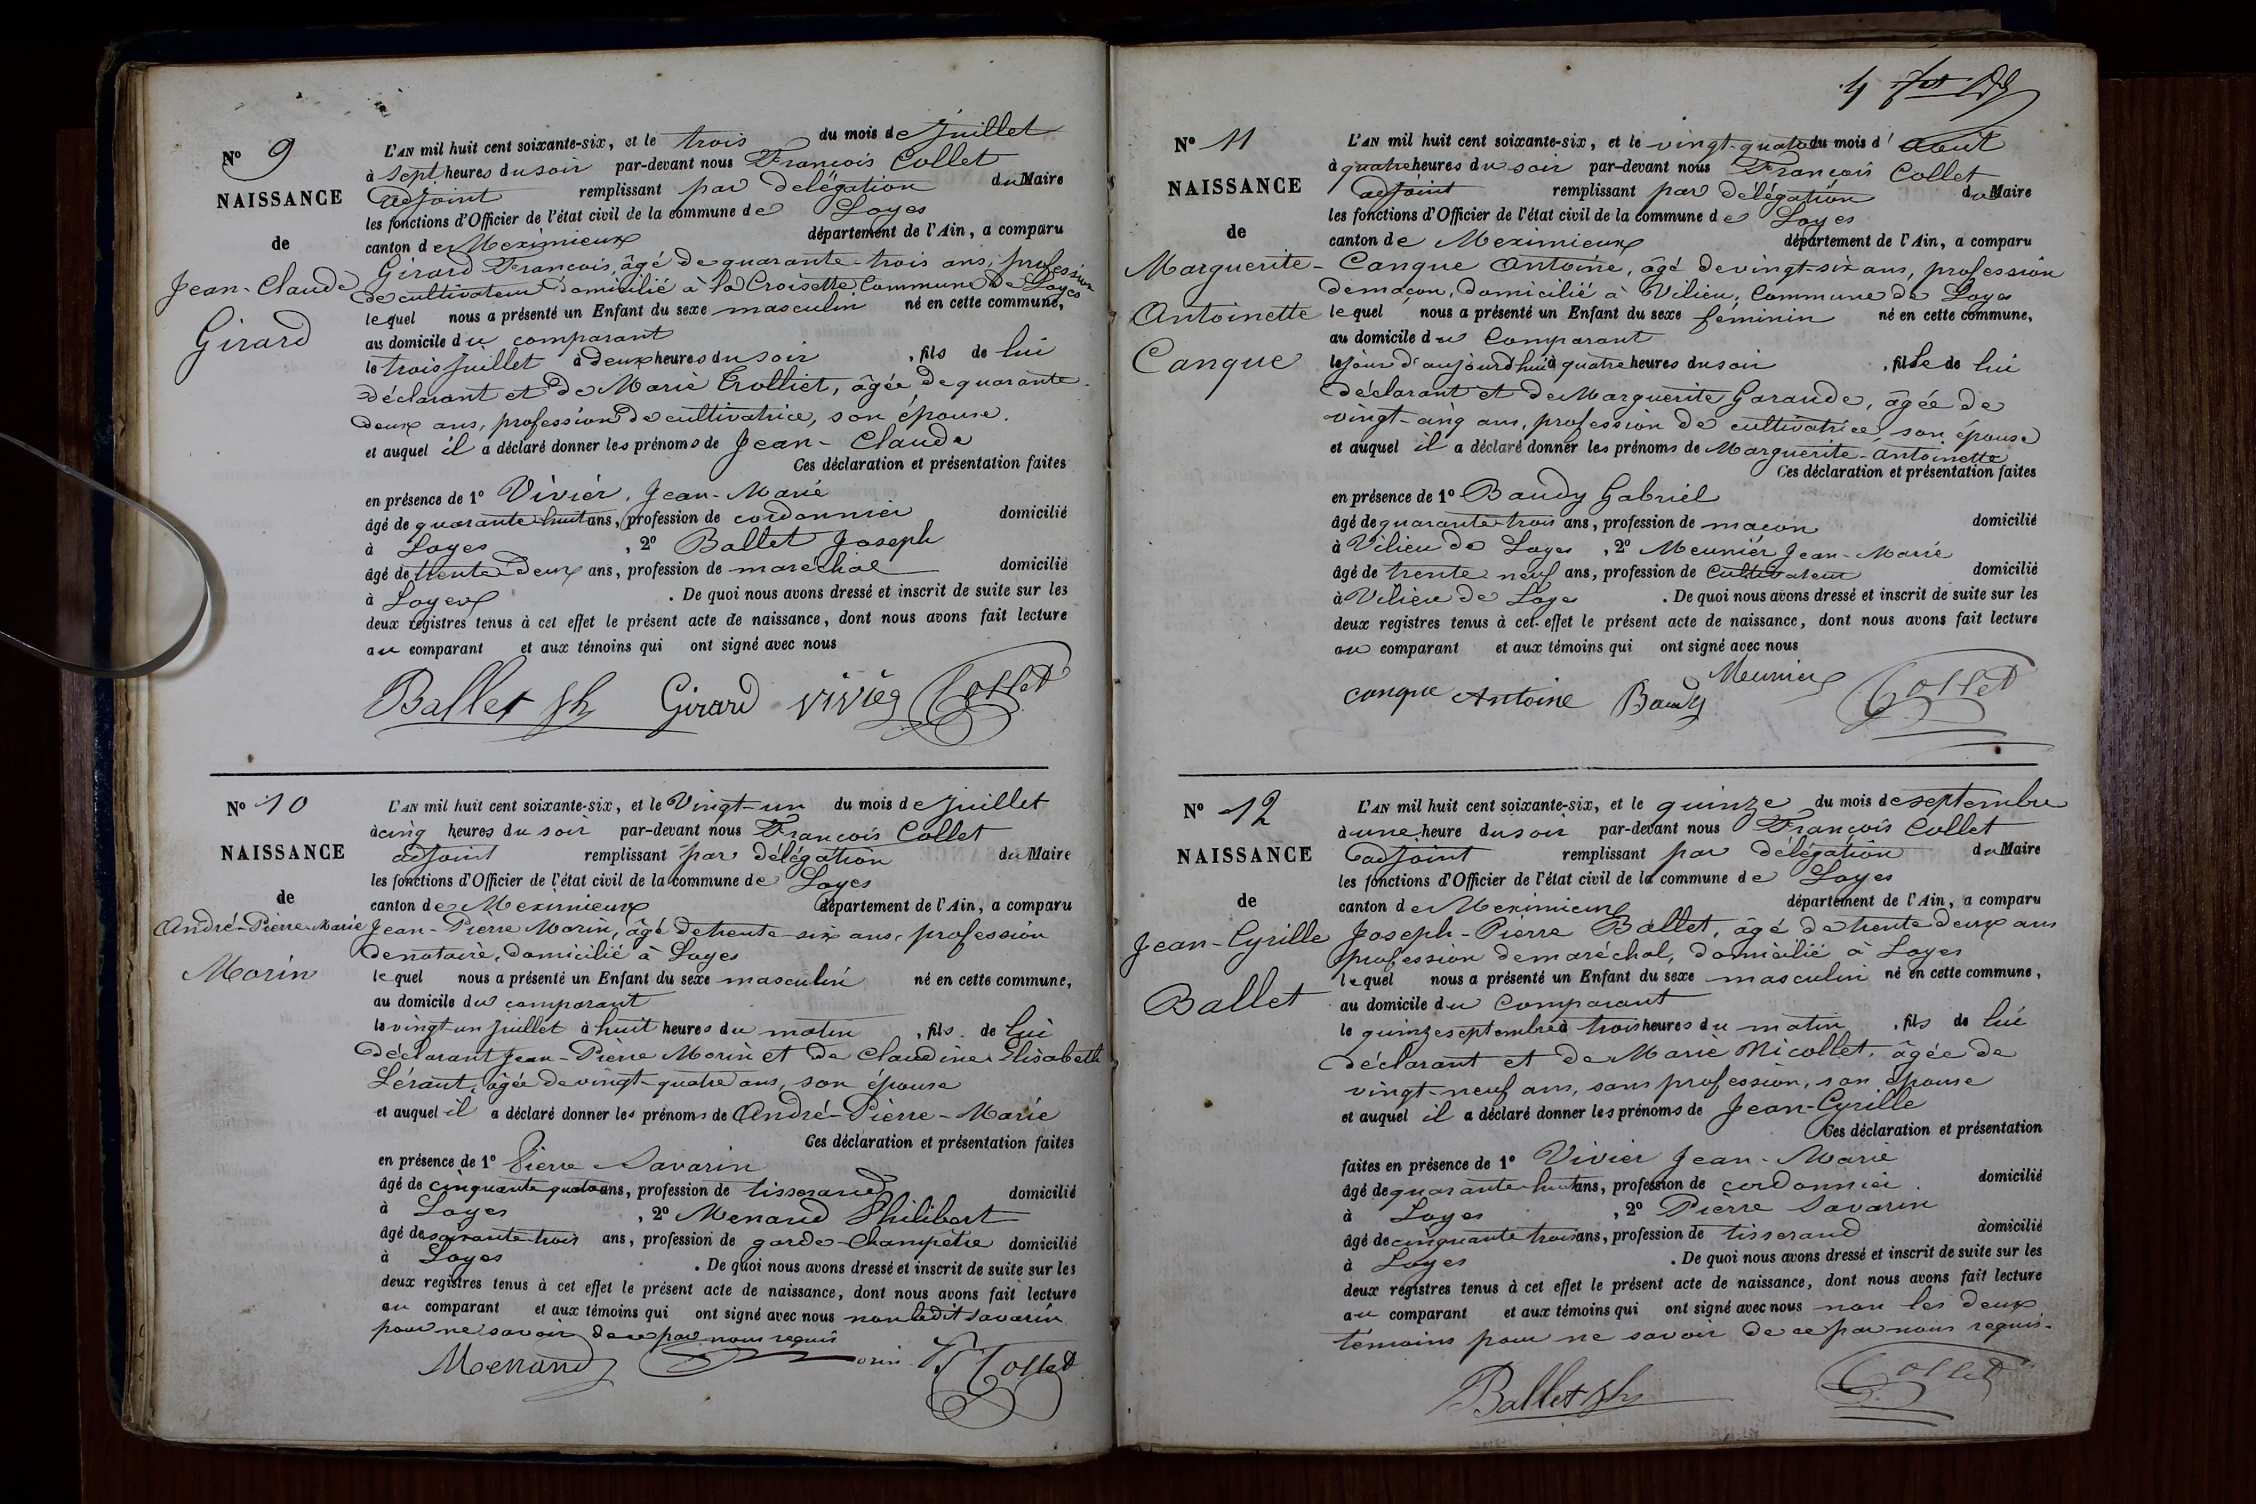 N° 9
NAISSANCE
de
Jean-Claude
Girard
L'AN mil huit cent soixante-six, et le trois du mois de Juillet
à sept heures du soir par-devant nous François Collet
adjoint remplissant par délégation du Maire
les fonctions d'Officier de l'état civil de la commune de Loyes
canton de Meximieux département de l'Ain, a comparu
Girard François, âgé de quarante-trois ans, profession
de cultivateur domicilié à la Croisette Commune de Loyes
lequel nous a présenté un Enfant du sexe masculin né en cette commune,
au domicile du comparant
le trois Juillet à deux heures du soir, fils de lui
déclarant et de Marie Trolliet, âgée de quarante-
deux ans, profession de cultivatrice, son épouse.
et auquel il a déclaré donner les prénoms de Jean-Claude
Ces déclaration et présentation faites
en présence de 1° Vivier, Jean-Marie
âgé de quarante huit ans, profession de cordonnier domicilié
à Loyes, 2° Ballet Joseph
âgé de trente deux ans, profession de maréchal domicilié
à Loyes. De quoi nous avons dressé et inscrit de suite sur les
deux registres tenus à cet effet le présent acte de naissance, dont nous avons fait lecture
au comparant et aux témoins qui ont signé avec nous
Ballet Jh Girard vivier Collet
N° 10
NAISSANCE
de
André-Pierre-Marie
Morin
L'AN mil huit cent soixante-six, et le Vingt-un du mois de Juillet
à cinq heures du soir par-devant nous François Collet
adjoint remplissant par délégation du Maire
les fonctions d'Officier de l'état civil de la commune de Loyes
canton de Meximieux département de l'Ain, a comparu
Jean-Pierre Morin, âgé de trente-six ans, profession
de notaire, domicilié à Loyes
lequel nous a présenté un Enfant du sexe masculin né en cette commune,
au domicile du comparant
le vingt-un Juillet à huit heures du matin, fils de lui
déclarant Jean-Pierre Morin et de Claudine Elisabeth
Lérant, âgée de vingt-quatre ans, son épouse
et auquel il a déclaré donner les prénoms de André-Pierre-Marie
Ces déclaration et présentation faites
en présence de 1° Pierre Savarin
âgé de cinquante quatre ans, profession de tisserand domicilié
à Loyes, 2° Menand Philibert
âgé de soixante-trois ans, profession de garde-Champêtre domicilié
à Loyes. De quoi nous avons dressé et inscrit de suite sur les
deux registres tenus à cet effet le présent acte de naissance, dont nous avons fait lecture
au comparant et aux témoins qui ont signé avec nous non ledit Savarin
pour ne savoir de ce par nous requis
Menand Morin Collet
N° 11
NAISSANCE
de
Marguerite-
Antoinette
Canque
L'AN mil huit cent soixante-six, et le vingt-quatre du mois d'août
à quatre heures du soir par-devant nous François Collet
adjoint remplissant par délégation du Maire
les fonctions d'Officier de l'état civil de la commune de Loyes
canton de Meximieux département de l'Ain, a comparu
Canque Antoine, âgé de vingt-six ans, profession
de maçon, domicilié à Vilieu, Commune de Loyes
lequel nous a présenté un Enfant du sexe féminin né en cette commune,
au domicile du Comparant
le jour d'aujourd'hui à quatre heures du soir, fille de lui
déclarant et de Marguerite Garande, âgée de
vingt-cinq ans, profession de cultivatrice, son épouse
et auquel il a déclaré donner les prénoms de Marguerite-Antoinette
Ces déclaration et présentation faites
en présence de 1° Baudy Gabriel
âgé de quarante-trois ans, profession de maçon domicilié
à Vilieu de Loyes, 2° Meunier Jean-Marie
âgé de trente neuf ans, profession de Cultivateur domicilié
à Vilieu de Loyes. De quoi nous avons dressé et inscrit de suite sur les
deux registres tenus à cet effet le présent acte de naissance, dont nous avons fait lecture
au comparant et aux témoins qui ont signé avec nous
canque Antoine Baudy Meunier Collet
N° 12
NAISSANCE
de
Jean-Cyrille
Ballet
L'AN mil huit cent soixante-six, et le quinze du mois de septembre
à une heure du soir par-devant nous François Collet
adjoint remplissant par délégation du Maire
les fonctions d'Officier de l'état civil de la commune de Loyes
canton de Meximieux département de l'Ain, a comparu
Joseph-Pierre Ballet, âgé de trente deux ans
profession de maréchal, domicilié à Loyes
lequel nous a présenté un Enfant du sexe masculin né en cette commune,
au domicile du Comparant
le quinze septembre à trois heures du matin, fils de lui
déclarant et de Marie Nicollet, âgée de
vingt-neuf ans, sans profession, son épouse
et auquel il a déclaré donner les prénoms de Jean-Cyrille
Ces déclaration et présentation
faites en présence de 1° Vivier Jean-Marie
âgé de quarante-huit ans, profession de cordonnier domicilié
à Loyes, 2° Pierre Savarin
âgé de cinquante trois ans, profession de tisserand domicilié
à Loyes. De quoi nous avons dressé et inscrit de suite sur les
deux registres tenus à cet effet le présent acte de naissance, dont nous avons fait lecture
au comparant et aux témoins qui ont signé avec nous non les deux
témoins pour ne savoir de ce par nous requis.
Ballet Jh Collet